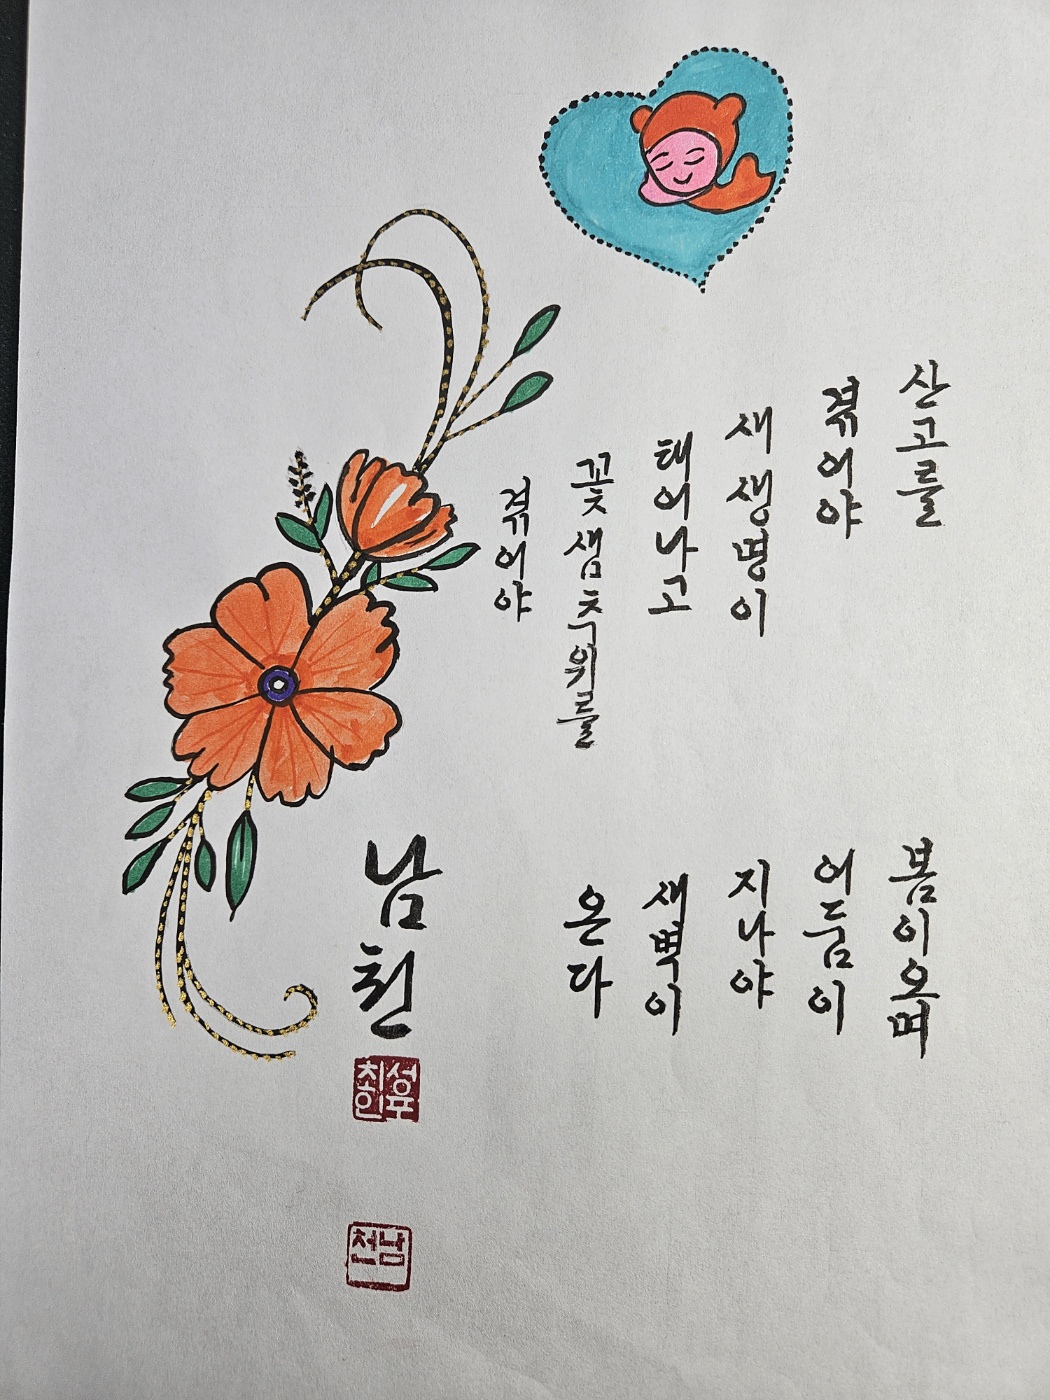 산고를
겪어야
새 생명이
태어나고
꽃샘추위를
겪어야
봄이 오며
어둠이
지나야
새벽이
온다
남천
남천